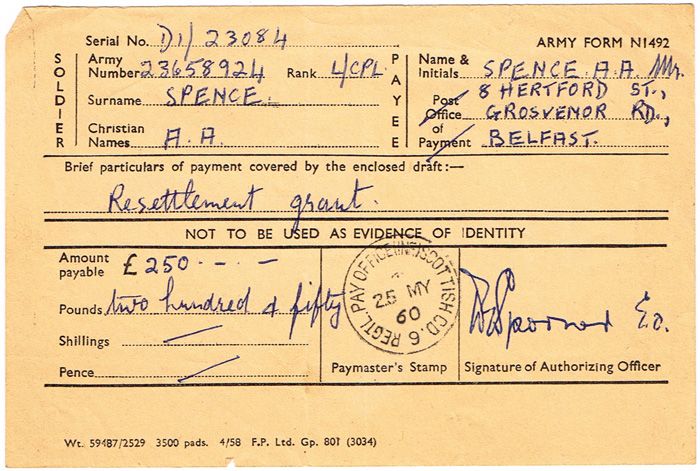 Serial No. D1/23084
ARMY FORM N1492
SOLDIER
Army Number 23658924 Rank L/CPL.
Surname SPENCE.
Christian Names A.A.
PAYEE
Name & Initials SPENCE. A.A. Mr.
Post Office of Payment
8 HERTFORD ST.,
GROSVENOR RD.,
BELFAST.
Brief particulars of payment covered by the enclosed draft:—
Resettlement grant.
NOT TO BE USED AS EVIDENCE OF IDENTITY
Amount payable £250 - - - -
Pounds two hundred & fifty
Shillings —
Pence —
REGTL PAY OFFICE (INF) SCOTTISH CD. 6
25 MY
60
Paymaster's Stamp
Signature of Authorizing Officer
Wt. 59487/2529 3500 pads. 4/58 F.P. Ltd. Gp. 801 (3034)